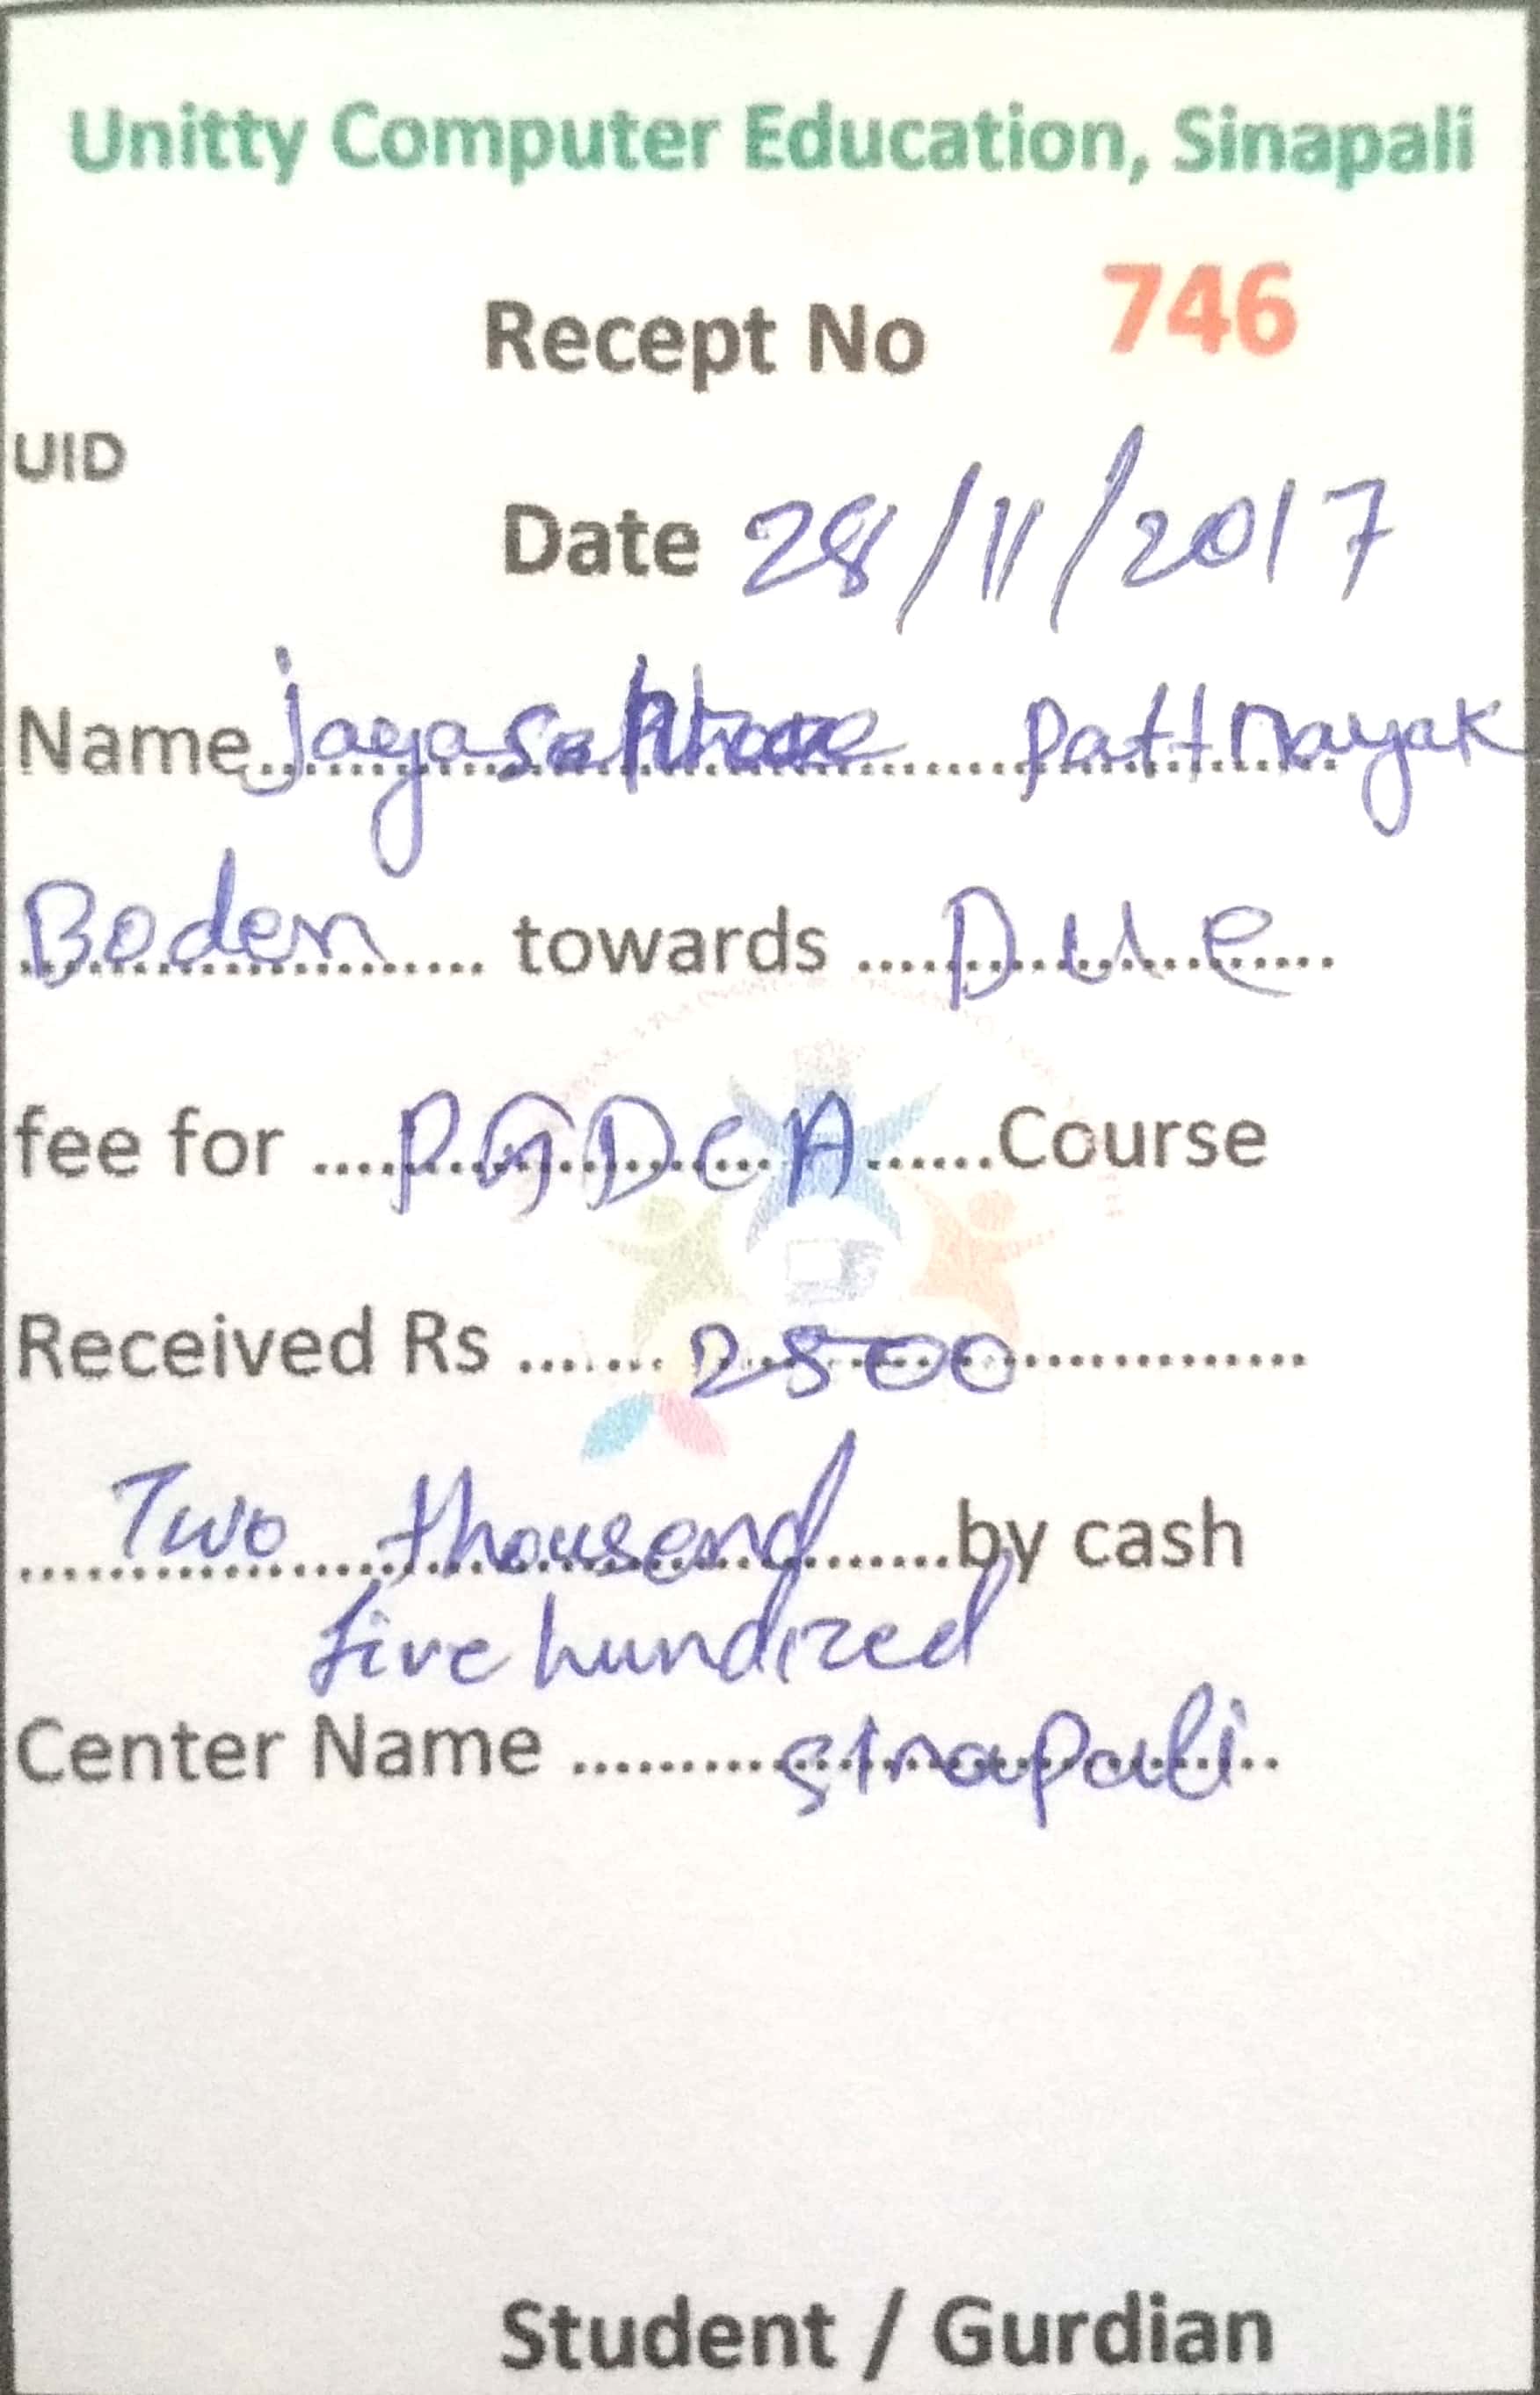 Unitty Computer Education, Sinapali
Recept No 746
UID
Date 28/11/2017
Name Pattnayak
Boden towards Due
fee for PGDCA Course
Received Rs 2500
Two thousend by cash
five hundred
Center Name sinapali
Student / Gurdian